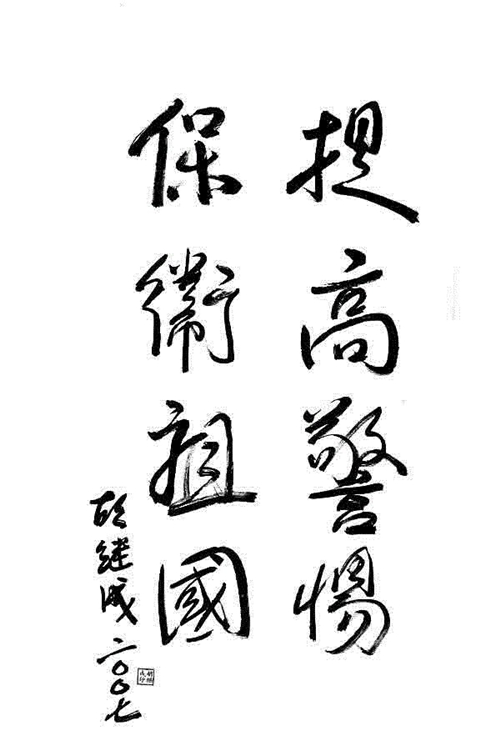 提高警惕
保衛祖國
胡继成 二〇〇七